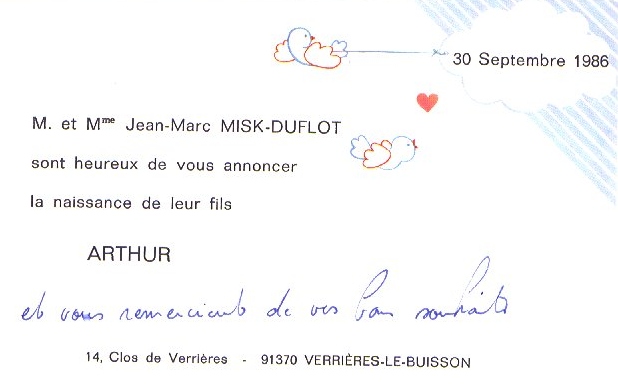 30 Septembre 1986
M. et Mme Jean-Marc MISK-DUFLOT
sont heureux de vous annoncer
la naissance de leur fils
ARTHUR
et vous remercient de vos bons souhaits
14, Clos de Verrières - 91370 VERRIÈRES-LE-BUISSON